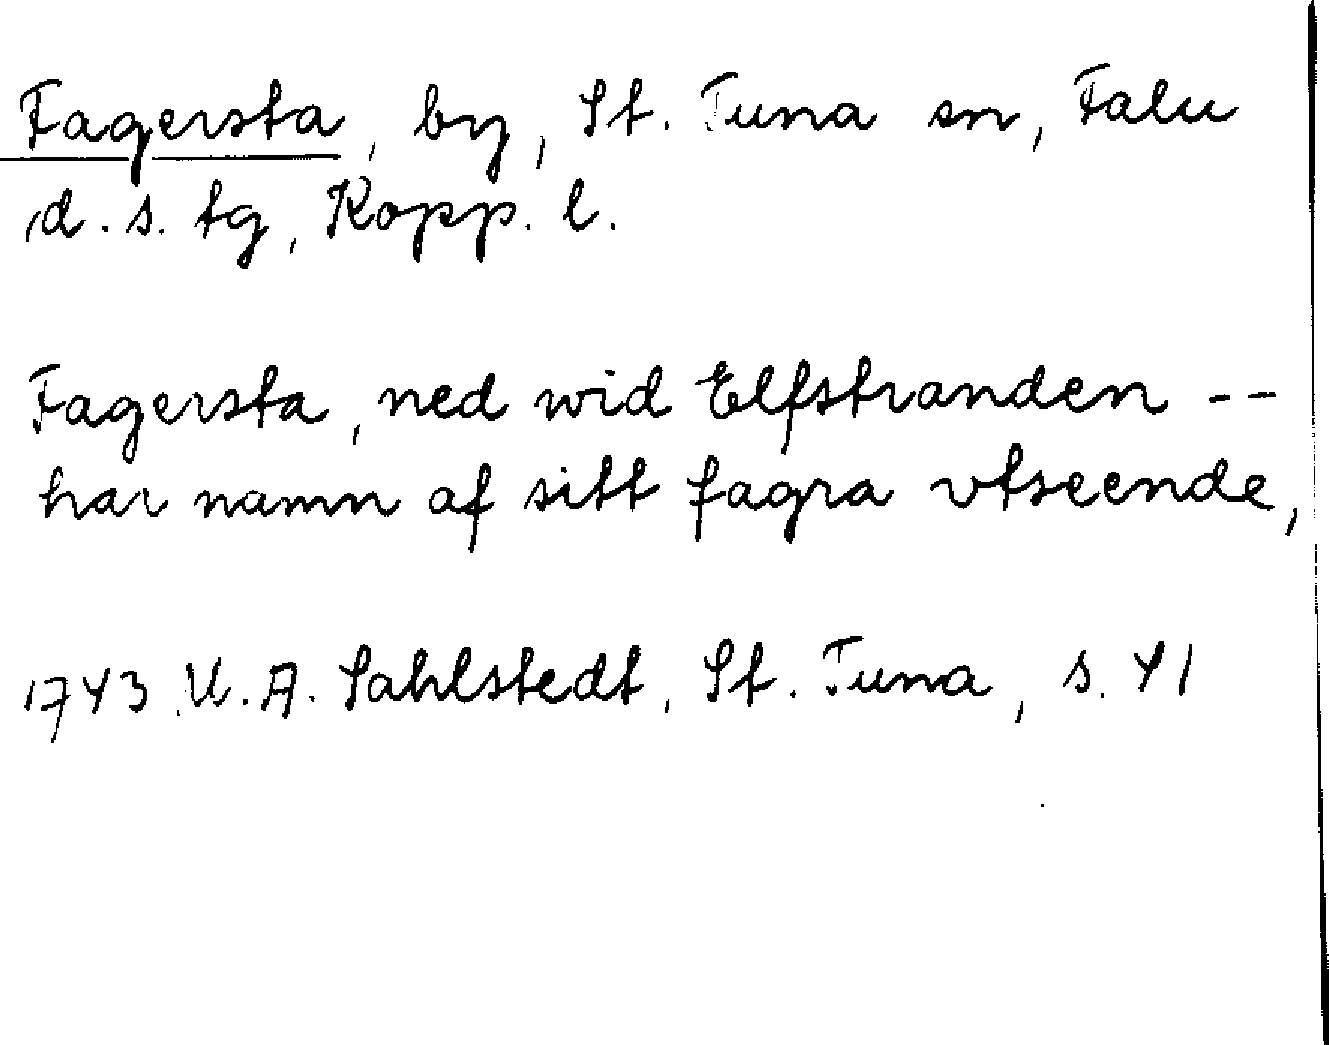 Fagersta, by, St. Tuna sn, Falu
d. s. tg, Kopp. l.
Fagersta, ned wid Elfstranden --
har namn af sitt fagra vtseende,
1743 U. A. Sahlstedt, St. Tuna, s. 41